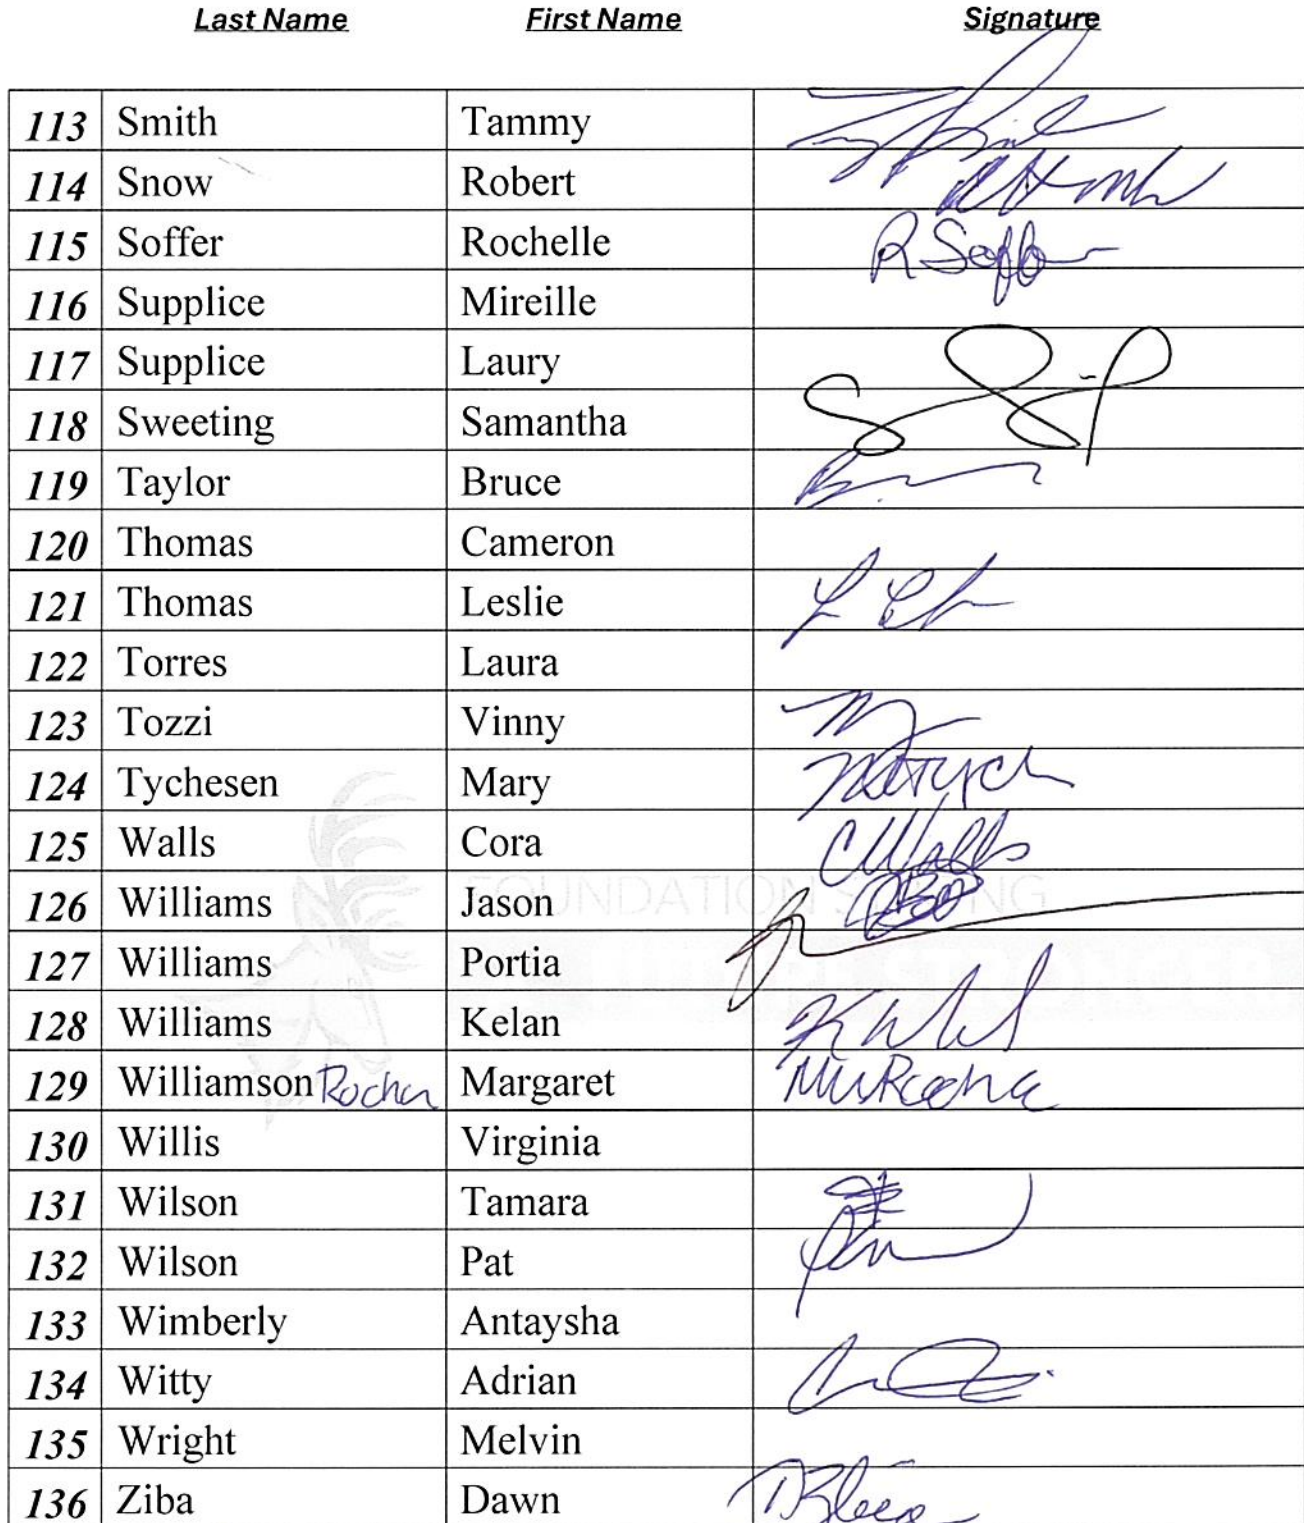 Last Name First Name Signature
113 Smith Tammy
114 Snow Robert
115 Soffer Rochelle R Soffer
116 Supplice Mireille
117 Supplice Laury
118 Sweeting Samantha
119 Taylor Bruce
120 Thomas Cameron
121 Thomas Leslie
122 Torres Laura
123 Tozzi Vinny
124 Tychesen Mary
125 Walls Cora C Walls
126 Williams Jason
127 Williams Portia
128 Williams Kelan
129 Williamson Rocha Margaret
130 Willis Virginia
131 Wilson Tamara
132 Wilson Pat
133 Wimberly Antaysha
134 Witty Adrian
135 Wright Melvin
136 Ziba Dawn